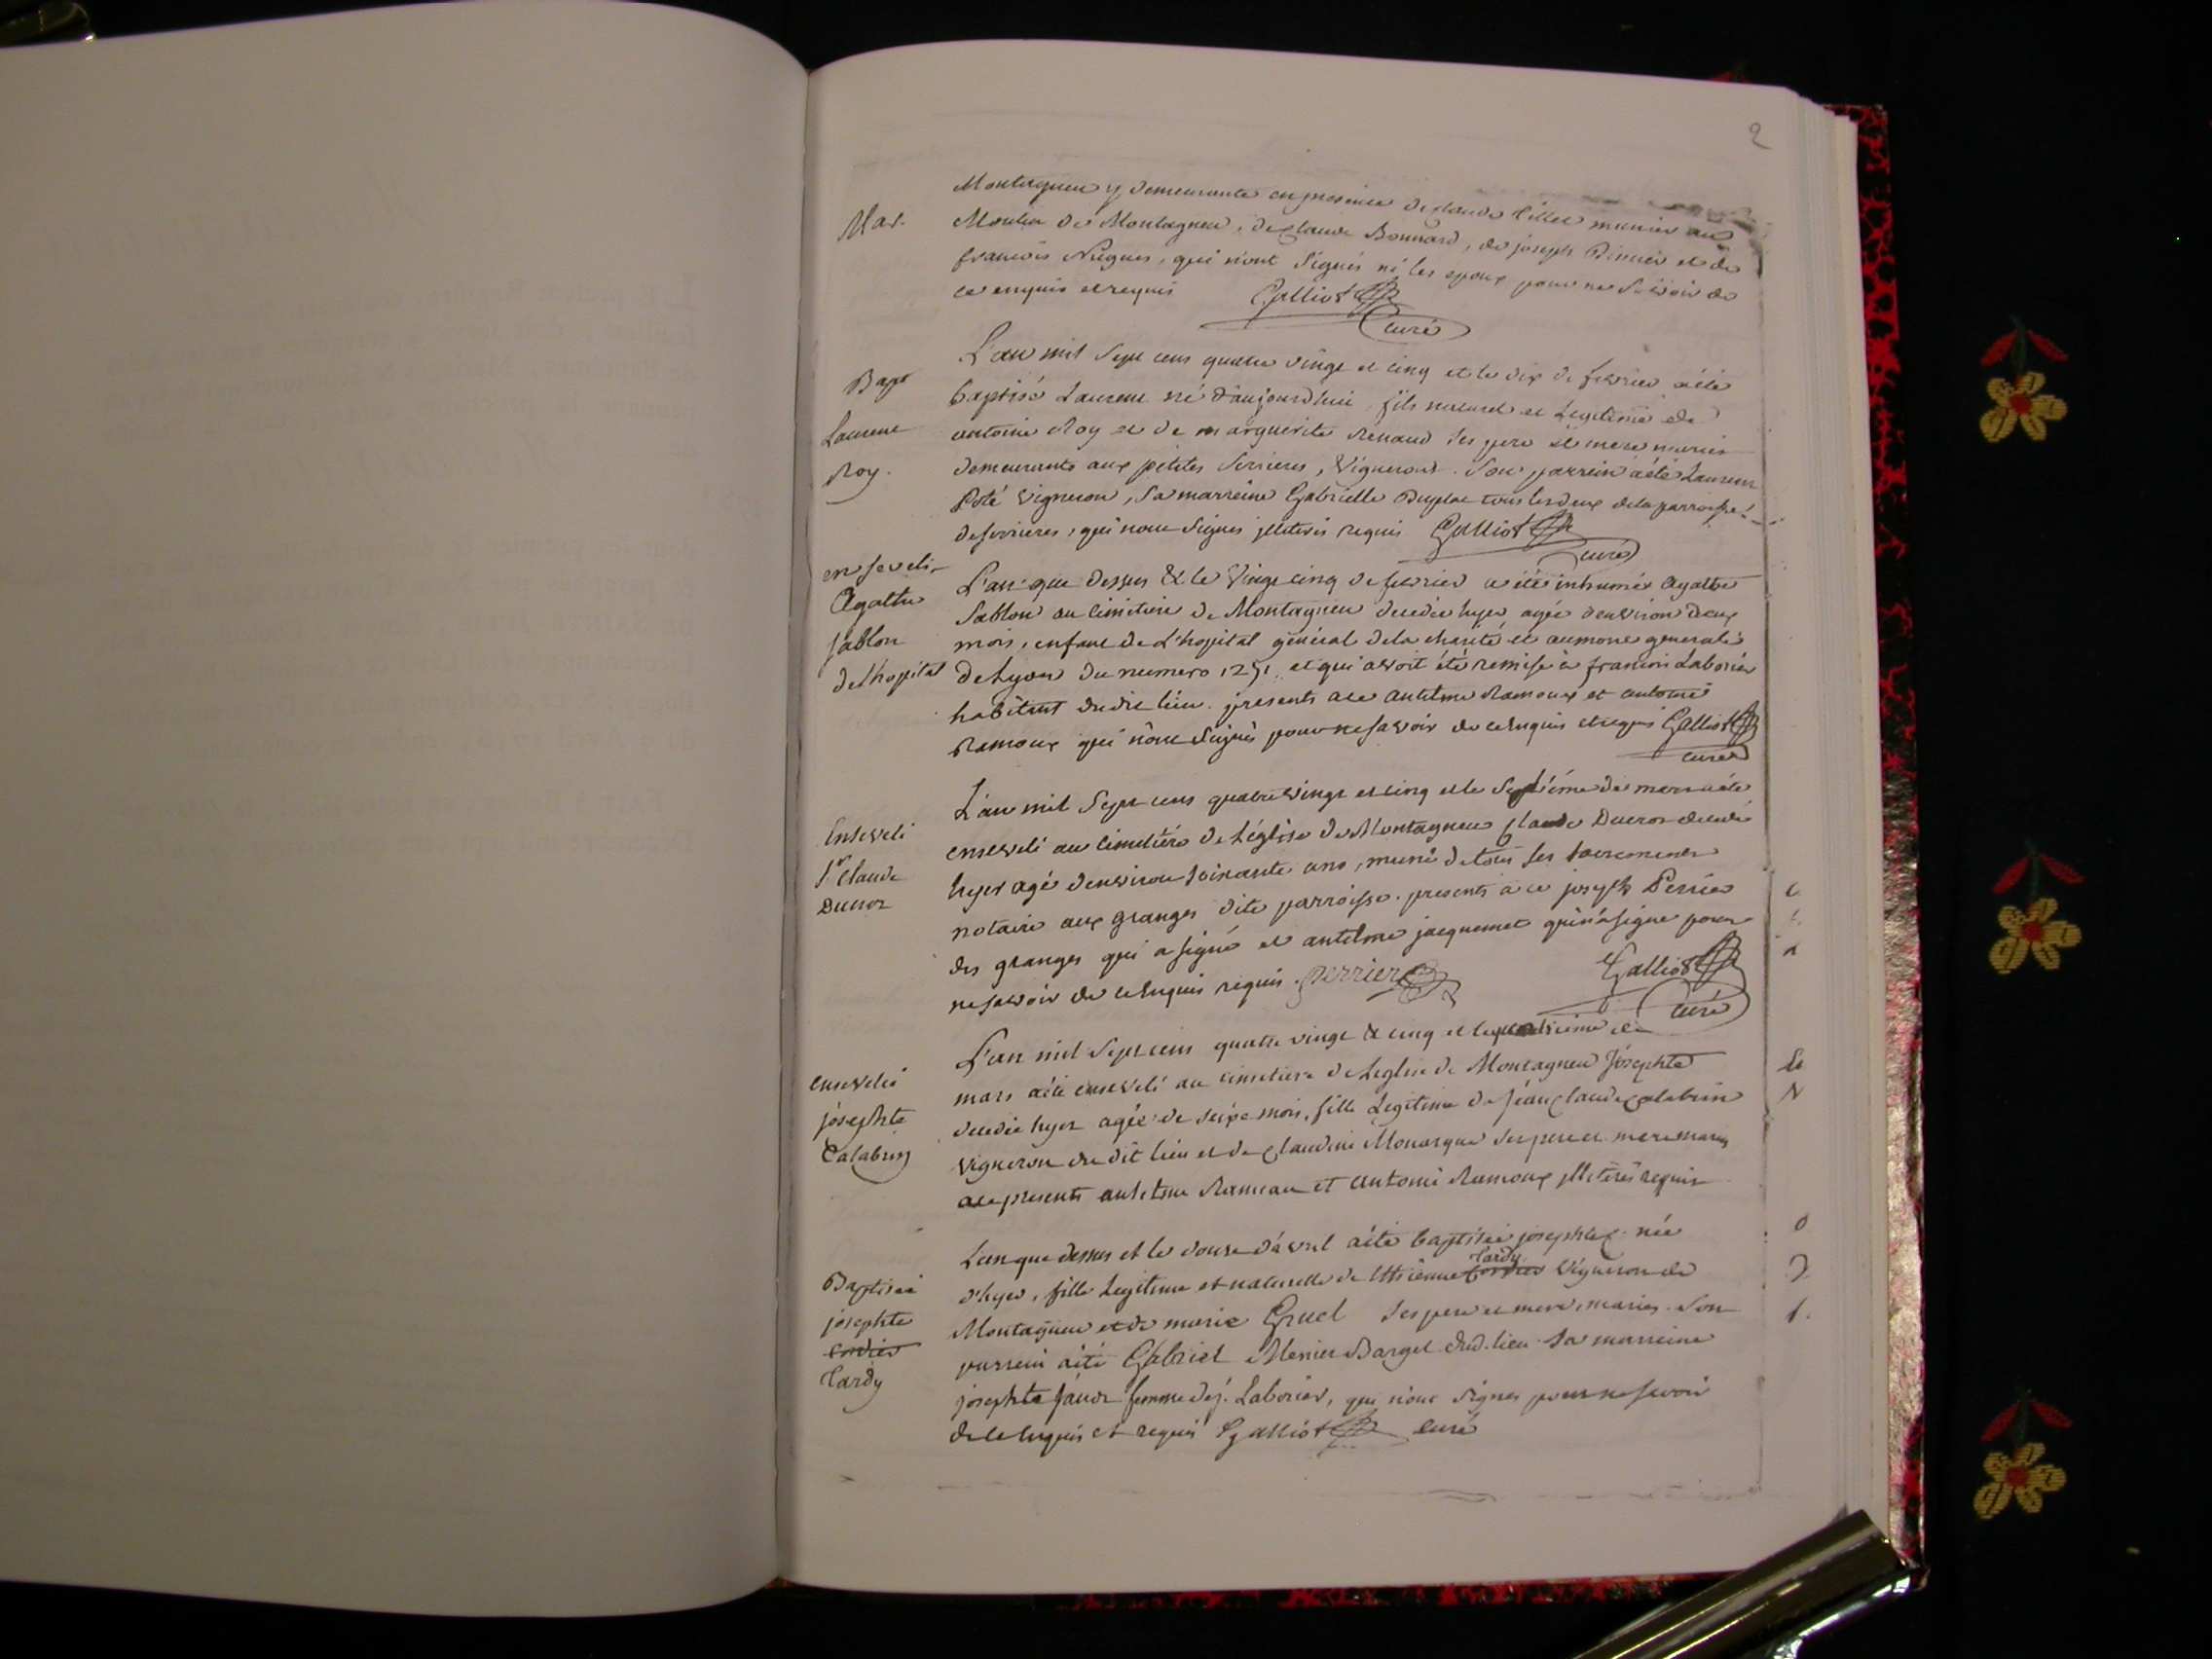 2
Mar.
Montagneu y demeurants en presence de claude Tillet munier au
Moulin de Montagneu, de claude Bonnard, de joseph et de
francois Nugues, qui n'ont signés ni les epoux pour ne sçavoir de
ce enquis et requis Galliot
curé
Bapt
Laurent
Roy.
L'an mil sept cens quatre vingt et cinq et le dix de fevrier a été
baptisé Laurent né d'aujourdhui fils naturel et Legitime de
antoine Roy et de marguerite Renaud ses pere et mere mariés
demeurants aux petites serrieres, Vignerons. Son parrein a été Laurent
Poté vigneron, sa marreine Gabrielle Duplat tous les deux de la parroisse
de serrieres, qui n'ont signés illiterés requis Galliot
curé
enseveli
Agathe
sablon
de l'hopital
L'an que dessus & le vingt cinq de fevrier a été inhumée Agathe
Sablon au cimitiere de Montagneu decedée hyer agée d'environ deux
mois, enfant de L'hopital général de la charité et aumone generale
de Lyon du numero 1251 et qui avoit été remise à francois Laborier
habitant dudit lieu. presents a ce antelme Ramoux et antoine
Ramoux qui n'ont signés pour ne savoir de ce enquis et requis Galliot
curé
Enseveli
Sr Claude
Ducroz
L'an mil sept cens quatre vingt et cinq et le septiéme de mars a été
enseveli au cimetiére de L'église de Montagneu claude Ducroz decedé
hyer agé d'environ soixante ans, muni de tous ses sacremens
notaire aux granges dite parroisse. presents a ce joseph Perrier
des granges qui a signé et antelme jacquemet qui n'a signe pour
ne savoir de ce enquis requis. Perrier Galliot
curé
ensevelie
josephte
Calabrin
L'an mil sept cens quatre vingt & cinq et le de
mars a été enseveli au cimetiere de Leglise de Montagneu Josephte
decedée hyer agée de seize mois, fille Legitime de jean claude calabrin
vigneron du dit lieu et de claudine Monarque ses pere et mere maries
a ce presents antelme Rameau et antoine Ramoux illiterés requis
Baptisée
josephte
cordier
Tardy
L'an que dessus et le douze d'avril a été baptisée josephte née
Tardy
d'hyer, fille Legitime et naturelle de Etienne cordier vigneron de
Montagneu et de marie Gruel ses pere et mere mariés. Son
parrein a été Gabriel Menier Barget dud. lieu sa marreine
josephte femme de j. Laborier, qui n'ont signes pour ne savoir
de ce enquis et requis Galliot curé